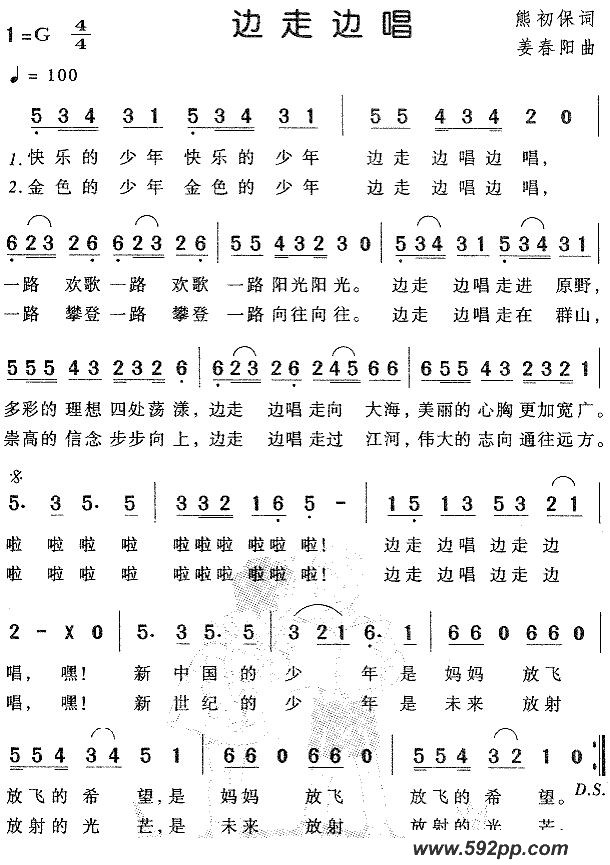 边走边唱
1=G 4/4
熊初保词
姜春阳曲
♩= 100
5 3 4 3 1 5 3 4 3 1 | 5 5 4 3 4 2 0
1.快乐的 少年 快乐的 少年 边走 边唱边 唱,
2.金色的 少年 金色的 少年 边走 边唱边 唱,
6 2 3 2 6 6 2 3 2 6 | 5 5 4 3 2 3 0 | 5 3 4 3 1 5 3 4 3 1
一路 欢歌一路 欢歌 一路阳光阳光。 边走 边唱走进 原野,
一路 攀登一路 攀登 一路向往向往。 边走 边唱走在 群山,
5 5 5 4 3 2 3 2 6 | 6 2 3 2 6 2 4 5 6 6 | 6 5 5 4 3 2 3 2 1
多彩的 理想 四处荡 漾,边走 边唱 走向 大海,美丽的 心胸 更加宽 广。
崇高的 信念 步步向 上,边走 边唱 走过 江河,伟大的 志向 通往远 方。
5· 3 5· 5 | 3 3 2 1 6 5 - | 1 5 1 3 5 3 2 1
啦 啦 啦 啦 啦啦啦 啦啦 啦! 边走 边唱 边走 边
啦 啦 啦 啦 啦啦啦 啦啦 啦! 边走 边唱 边走 边
2 - X 0 | 5· 3 5· 5 | 3 2 1 6· 1 | 6 6 0 6 6 0
唱, 嘿! 新 中 国 的 少 年 是 妈妈 放飞
唱, 嘿! 新 世 纪 的 少 年 是 未来 放射
5 5 4 3 4 5 1 | 6 6 0 6 6 0 | 5 5 4 3 2 1 0 :‖
D.S.
放飞的 希 望,是 妈妈 放飞 放飞的 希 望。
放射的 光 芒,是 未来 放射 放射的 光 芒。
www.592pp.com